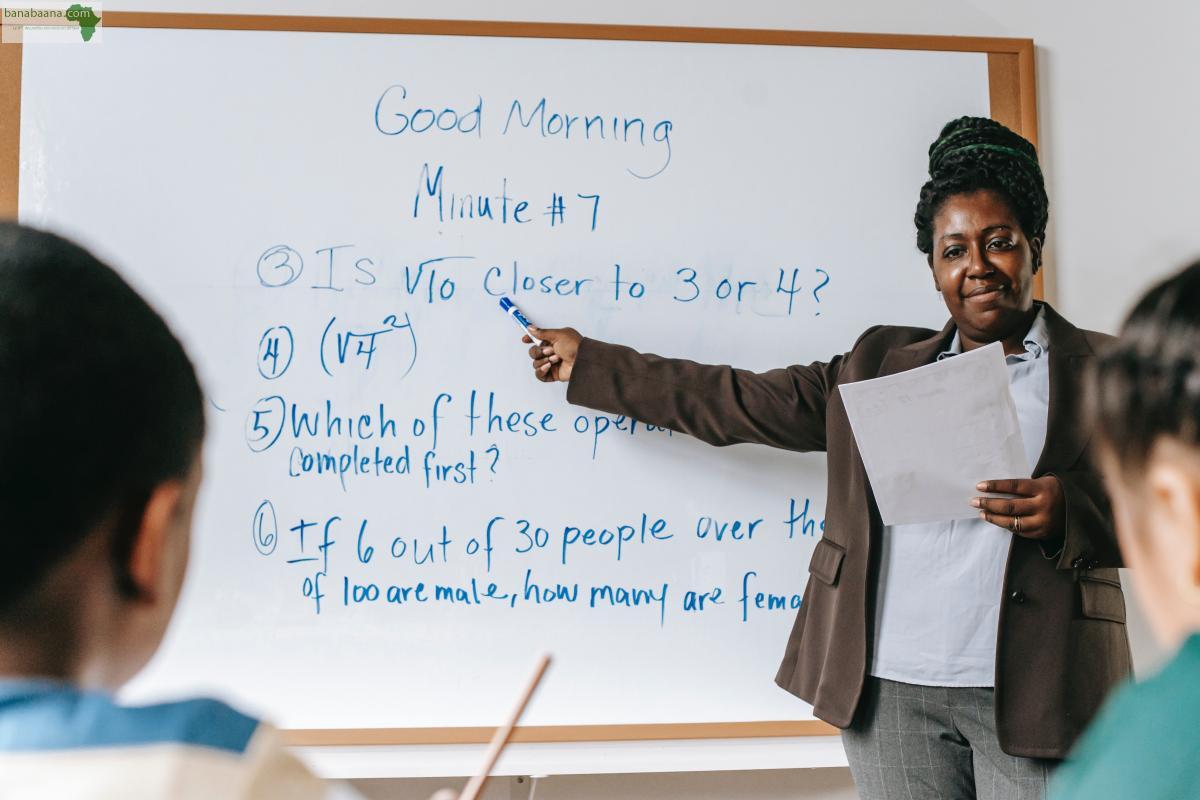 banabaana.com
Good Morning
Minute #7
③ Is √10 closer to 3 or 4?
④ (√4²)
⑤ Which of these
completed first?
⑥ If 6 out of 30 people over the
of 100 are male, how many are